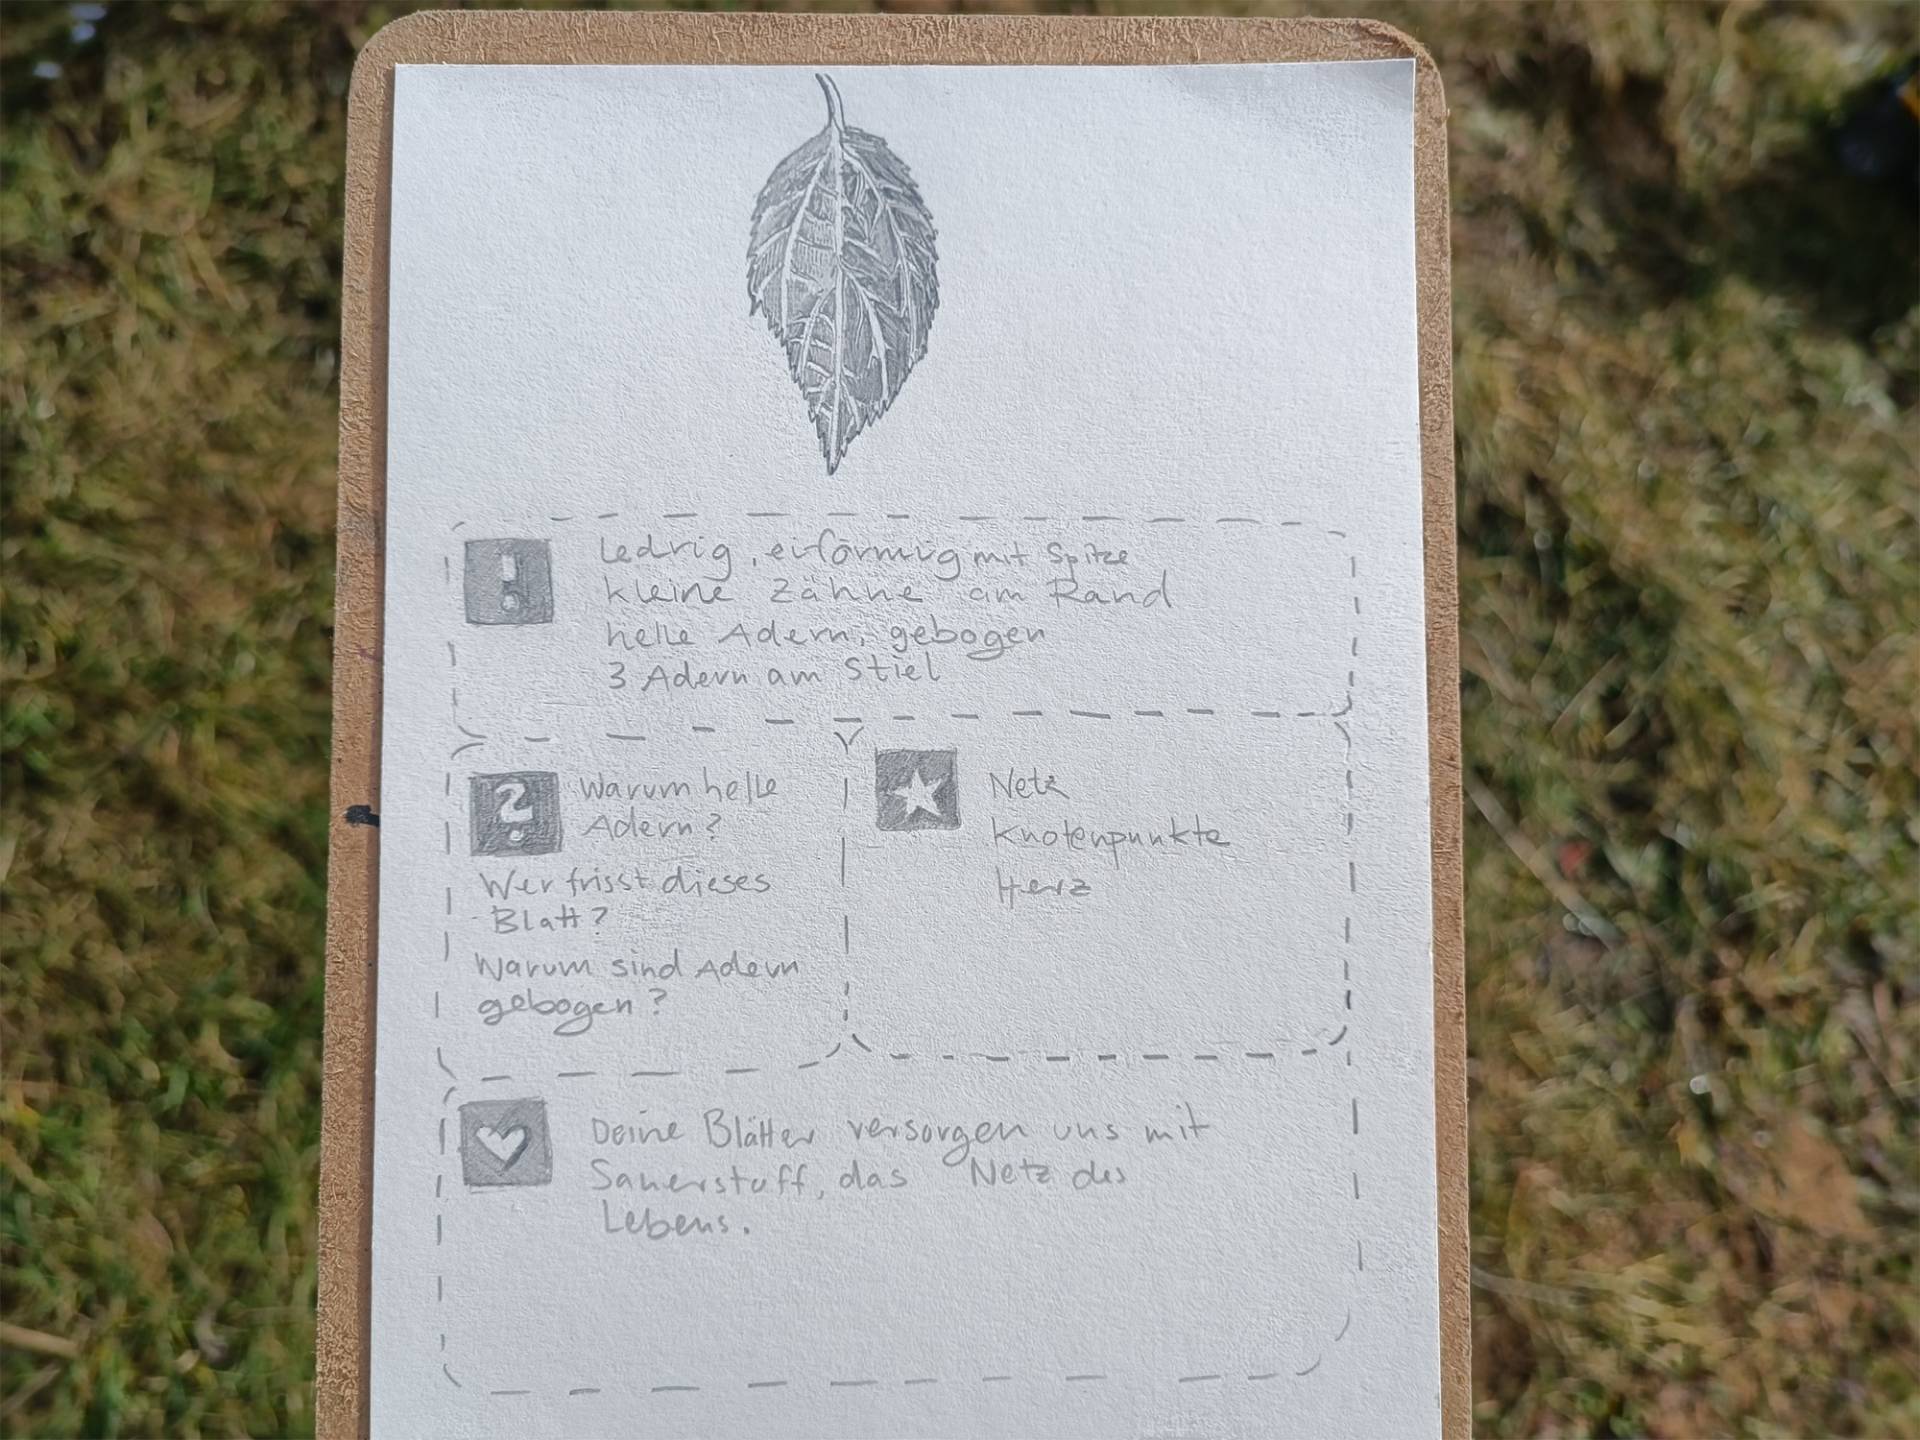 !
Ledrig, eiförmig mit Spitze
kleine Zähne am Rand
helle Adern, gebogen
3 Adern am Stiel
?
Warum helle
Adern?
Wer frisst dieses
Blatt?
Warum sind Adern
gebogen?
Netz
Knotenpunkte
Herz
Deine Blätter versorgen uns mit
Sauerstoff, das Netz des
Lebens.